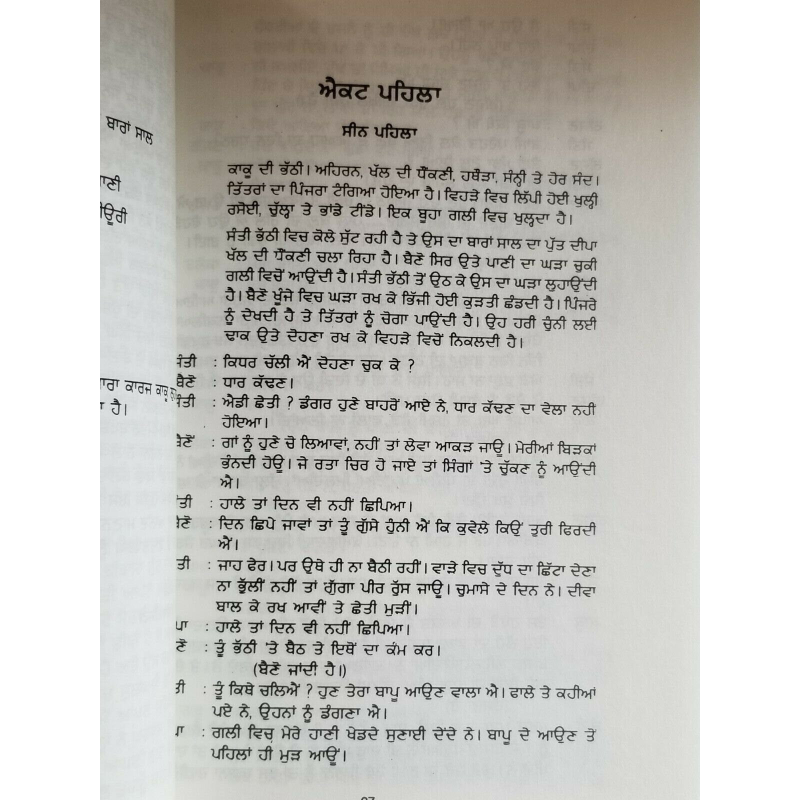 ਬਾਰਾਂ ਸਾਲ
ਾਣੀ
ੀਊਰੀ
ਾਰਾ ਕਾਰਜ ਕਾਕੂ
ਾ ਹੈ।
ਐਕਟ ਪਹਿਲਾ
ਸੀਨ ਪਹਿਲਾ
ਕਾਕੂ ਦੀ ਭੱਠੀ। ਅਹਿਰਨ, ਖੱਲ ਦੀ ਧੌਂਕਣੀ, ਹਥੌੜਾ, ਸੰਨ੍ਹੀ ਤੇ ਹੋਰ ਸੰਦ।
ਤਿੱਤਰਾਂ ਦਾ ਪਿੰਜਰਾ ਟੰਗਿਆ ਹੋਇਆ ਹੈ। ਵਿਹੜੇ ਵਿਚ ਲਿੱਪੀ ਹੋਈ ਖੁਲ੍ਹੀ
ਰਸੋਈ, ਚੁੱਲ੍ਹਾ ਤੇ ਭਾਂਡੇ ਟੀਂਡੇ। ਇਕ ਬੂਹਾ ਗਲੀ ਵਿਚ ਖੁਲ੍ਹਦਾ ਹੈ।
ਸੰਤੀ ਭੱਠੀ ਵਿਚ ਕੋਲੇ ਸੁੱਟ ਰਹੀ ਹੈ ਤੇ ਉਸ ਦਾ ਬਾਰਾਂ ਸਾਲ ਦਾ ਪੁੱਤ ਦੀਪਾ
ਖੱਲ ਦੀ ਧੌਂਕਣੀ ਚਲਾ ਰਿਹਾ ਹੈ। ਬੈਣੋ ਸਿਰ ਉਤੇ ਪਾਣੀ ਦਾ ਘੜਾ ਚੁਕੀ
ਗਲੀ ਵਿਚੋਂ ਆਉਂਦੀ ਹੈ। ਸੰਤੀ ਭੱਠੀ ਤੋਂ ਉਠ ਕੇ ਉਸ ਦਾ ਘੜਾ ਲੁਹਾਉਂਦੀ
ਹੈ। ਬੈਣੋ ਖੂੰਜੇ ਵਿਚ ਘੜਾ ਰਖ ਕੇ ਭਿੱਜੀ ਹੋਈ ਕੁੜਤੀ ਛੰਡਦੀ ਹੈ। ਪਿੰਜਰੇ
ਨੂੰ ਦੇਖਦੀ ਹੈ ਤੇ ਤਿੱਤਰਾਂ ਨੂੰ ਚੋਗਾ ਪਾਉਂਦੀ ਹੈ। ਉਹ ਹਰੀ ਚੁੰਨੀ ਲਈ
ਢਾਕ ਉਤੇ ਦੋਹਣਾ ਰਖ ਕੇ ਵਿਹੜੇ ਵਿਚੋਂ ਨਿਕਲਦੀ ਹੈ।
ਸੰਤੀ : ਕਿਧਰ ਚੱਲੀ ਐਂ ਦੋਹਣਾ ਚੁਕ ਕੇ ?
ਬੈਣੋ : ਧਾਰ ਕੱਢਣ।
ੰਤੀ : ਐਡੀ ਛੇਤੀ ? ਡੰਗਰ ਹੁਣੇ ਬਾਹਰੋਂ ਆਏ ਨੇ, ਧਾਰ ਕੱਢਣ ਦਾ ਵੇਲਾ ਨਹੀਂ
ਹੋਇਆ।
ਬੈਣੋ : ਗਾਂ ਨੂੰ ਹੁਣੇ ਚੋ ਲਿਆਵਾਂ, ਨਹੀਂ ਤਾਂ ਲੇਵਾ ਆਕੜ ਜਾਊ। ਮੇਰੀਆਂ ਬਿੜਕਾਂ
ਭੰਨਦੀ ਹੋਊ। ਜੇ ਰਤਾ ਚਿਰ ਹੋ ਜਾਏ ਤਾਂ ਸਿੰਗਾਂ 'ਤੇ ਚੁੱਕਣ ਨੂੰ ਆਉਂਦੀ
ਐ।
ੰਤੀ : ਹਾਲੇ ਤਾਂ ਦਿਨ ਵੀ ਨਹੀਂ ਛਿਪਿਆ।
ਬੈਣੋ : ਦਿਨ ਛਿਪੇ ਜਾਵਾਂ ਤਾਂ ਤੂੰ ਗੁੱਸੇ ਹੁੰਨੀ ਐਂ ਕਿ ਕੁਵੇਲੇ ਕਿਉਂ ਤੁਰੀ ਫਿਰਦੀ
ਐਂ।
ਤੀ : ਜਾਹ ਫੇਰ। ਪਰ ਉਥੇ ਹੀ ਨਾ ਬੈਠੀ ਰਹੀਂ। ਵਾੜੇ ਵਿਚ ਦੁੱਧ ਦਾ ਛਿੱਟਾ ਦੇਣਾ
ਨਾ ਭੁੱਲੀਂ ਨਹੀਂ ਤਾਂ ਗੁੱਗਾ ਪੀਰ ਰੁੱਸ ਜਾਊ। ਚੁਮਾਸੇ ਦੇ ਦਿਨ ਨੇ। ਦੀਵਾ
ਬਾਲ ਕੇ ਰਖ ਆਵੀਂ ਤੇ ਛੇਤੀ ਮੁੜੀਂ।
ਪਾ : ਹਾਲੇ ਤਾਂ ਦਿਨ ਵੀ ਨਹੀਂ ਛਿਪਿਆ।
ਣੋ : ਤੂੰ ਭੱਠੀ 'ਤੇ ਬੈਠ ਤੇ ਇਥੋਂ ਦਾ ਕੰਮ ਕਰ।
(ਬੈਣੋ ਜਾਂਦੀ ਹੈ।)
ਤੀ : ਤੂੰ ਕਿਥੇ ਚਲਿਐਂ ? ਹੁਣ ਤੇਰਾ ਬਾਪੂ ਆਉਣ ਵਾਲਾ ਐ। ਫਾਲੇ ਤੇ ਕਹੀਆਂ
ਪਏ ਨੇ, ਉਹਨਾਂ ਨੂੰ ਡੰਗਣਾ ਐ।
ਪਾ : ਗਲੀ ਵਿਚ ਮੇਰੇ ਹਾਣੀ ਖੇਡਦੇ ਸੁਣਾਈ ਦੇਂਦੇ ਨੇ। ਬਾਪੂ ਦੇ ਆਉਣ ਤੋਂ
ਪਹਿਲਾਂ ਹੀ ਮੁੜ ਆਊਂ।